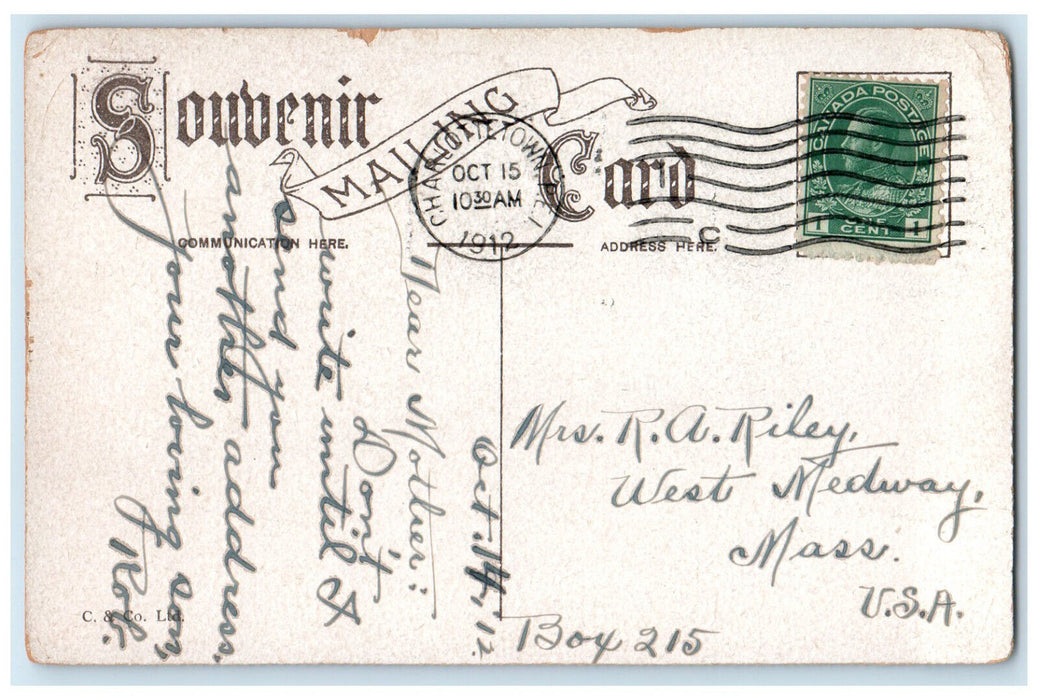 Souvenir
MAILING
Card
CHARLOTTETOWN P.E.I.
OCT 15
10 30 AM
1912
C
CANADA POSTAGE
1 CENT 1
COMMUNICATION HERE.
ADDRESS HERE.
Oct. 14, '12.
Dear Mother:
Don't
write until I
send you
another address.
Your loving son,
Rob.
Mrs. R. A. Riley,
West Medway,
Mass.
U.S.A.
Box 215
C. & Co. Ltd.